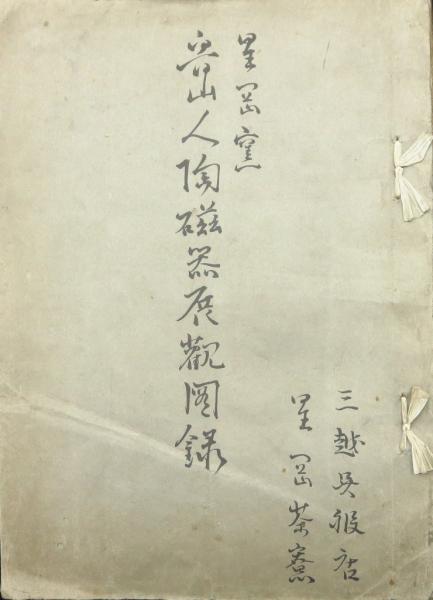 星岡窯
魯山人陶磁器展觀図録
三越呉服店
星岡茶寮